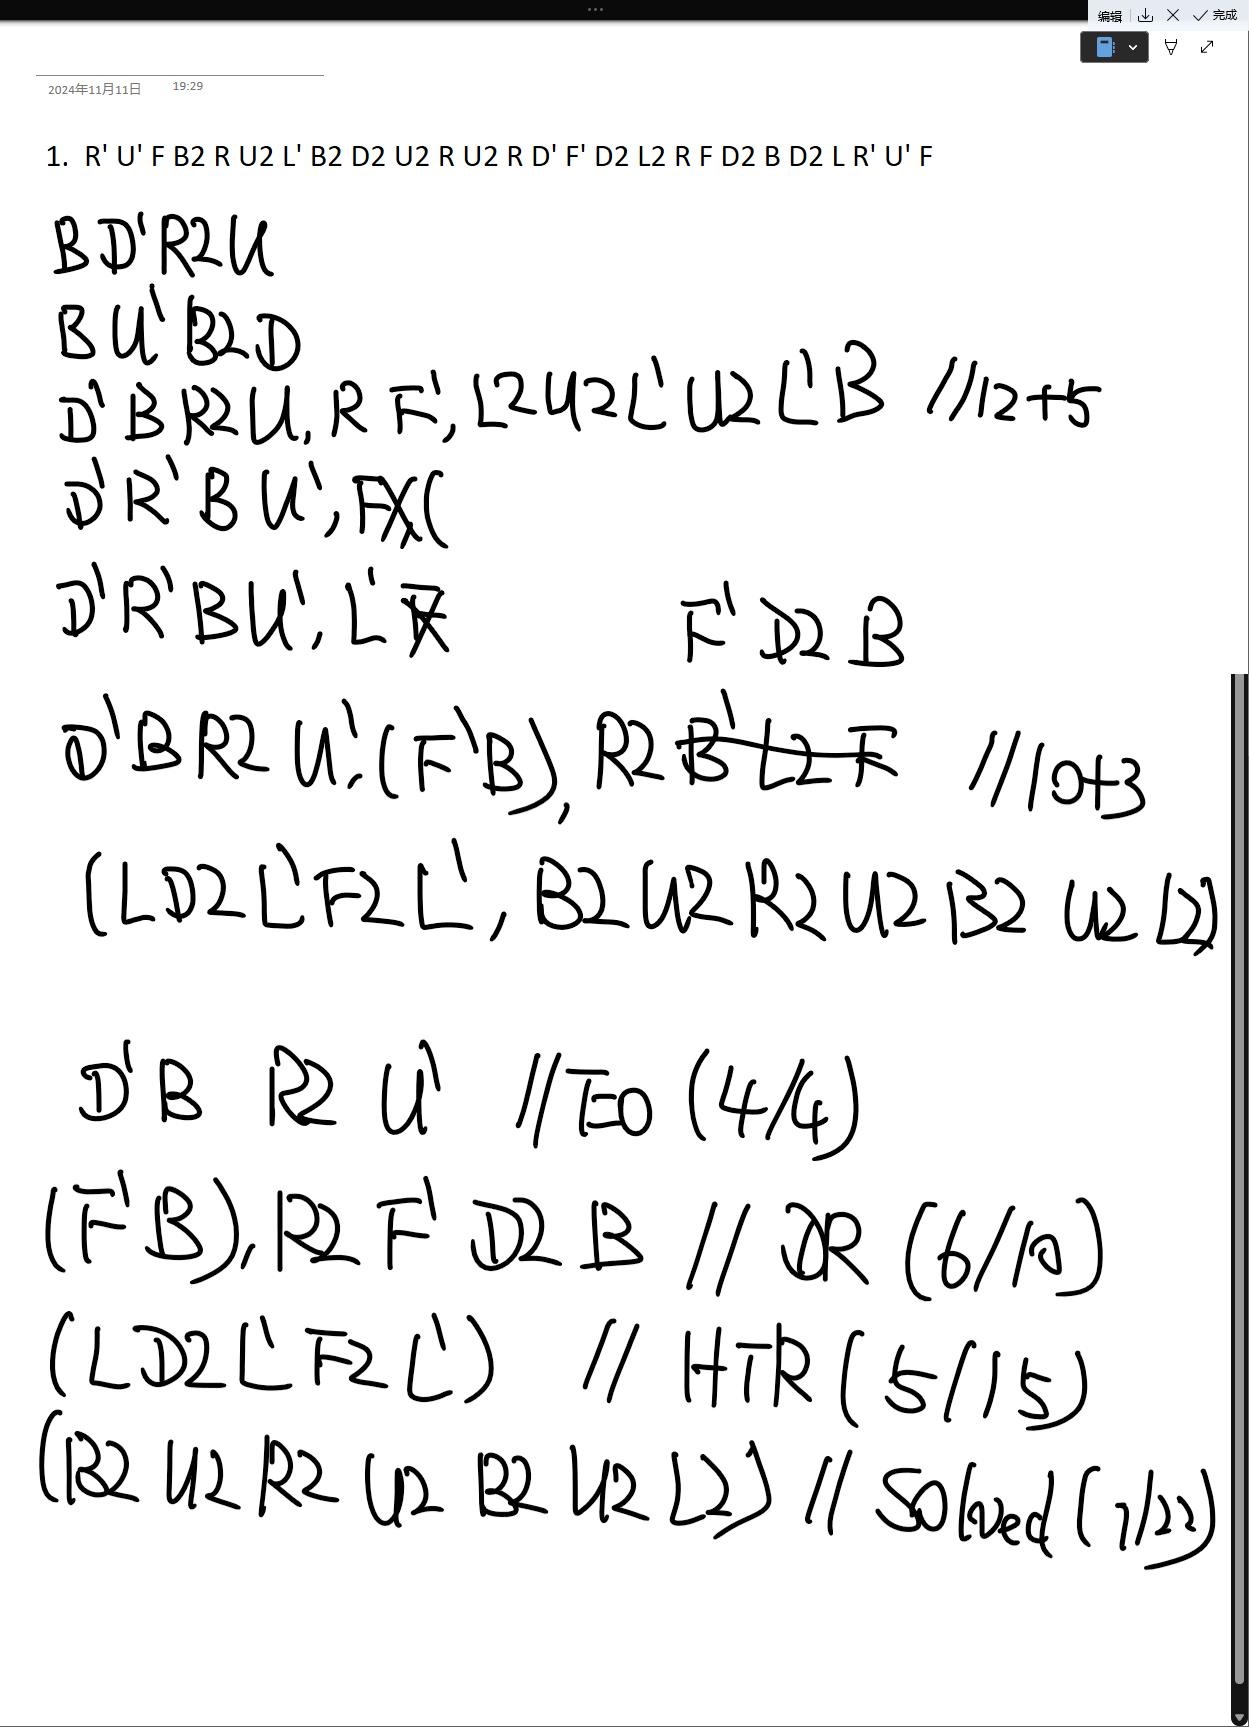 编辑 完成
2024年11月11日 19:29
1. R' U' F B2 R U2 L' B2 D2 U2 R U2 R D' F' D2 L2 R F D2 B D2 L R' U' F
B D' R2 U
B U' B2 D
D' B R2 U, R F', L2 U2 L' U2 L' B //12+5
D' R' B U', F (
D' R' B U', L'
F' D2 B
D' B R2 U', (F' B), R2 B' L2 F //10+3
(L D2 L' F2 L', B2 U2 R2 U2 B2 U2 L2)
D' B R2 U' //EO (4/4)
(F' B), R2 F' D2 B // DR (6/10)
(L D2 L' F2 L') // HTR (5/15)
(B2 U2 R2 U2 B2 U2 L2) // Solved (7/22)